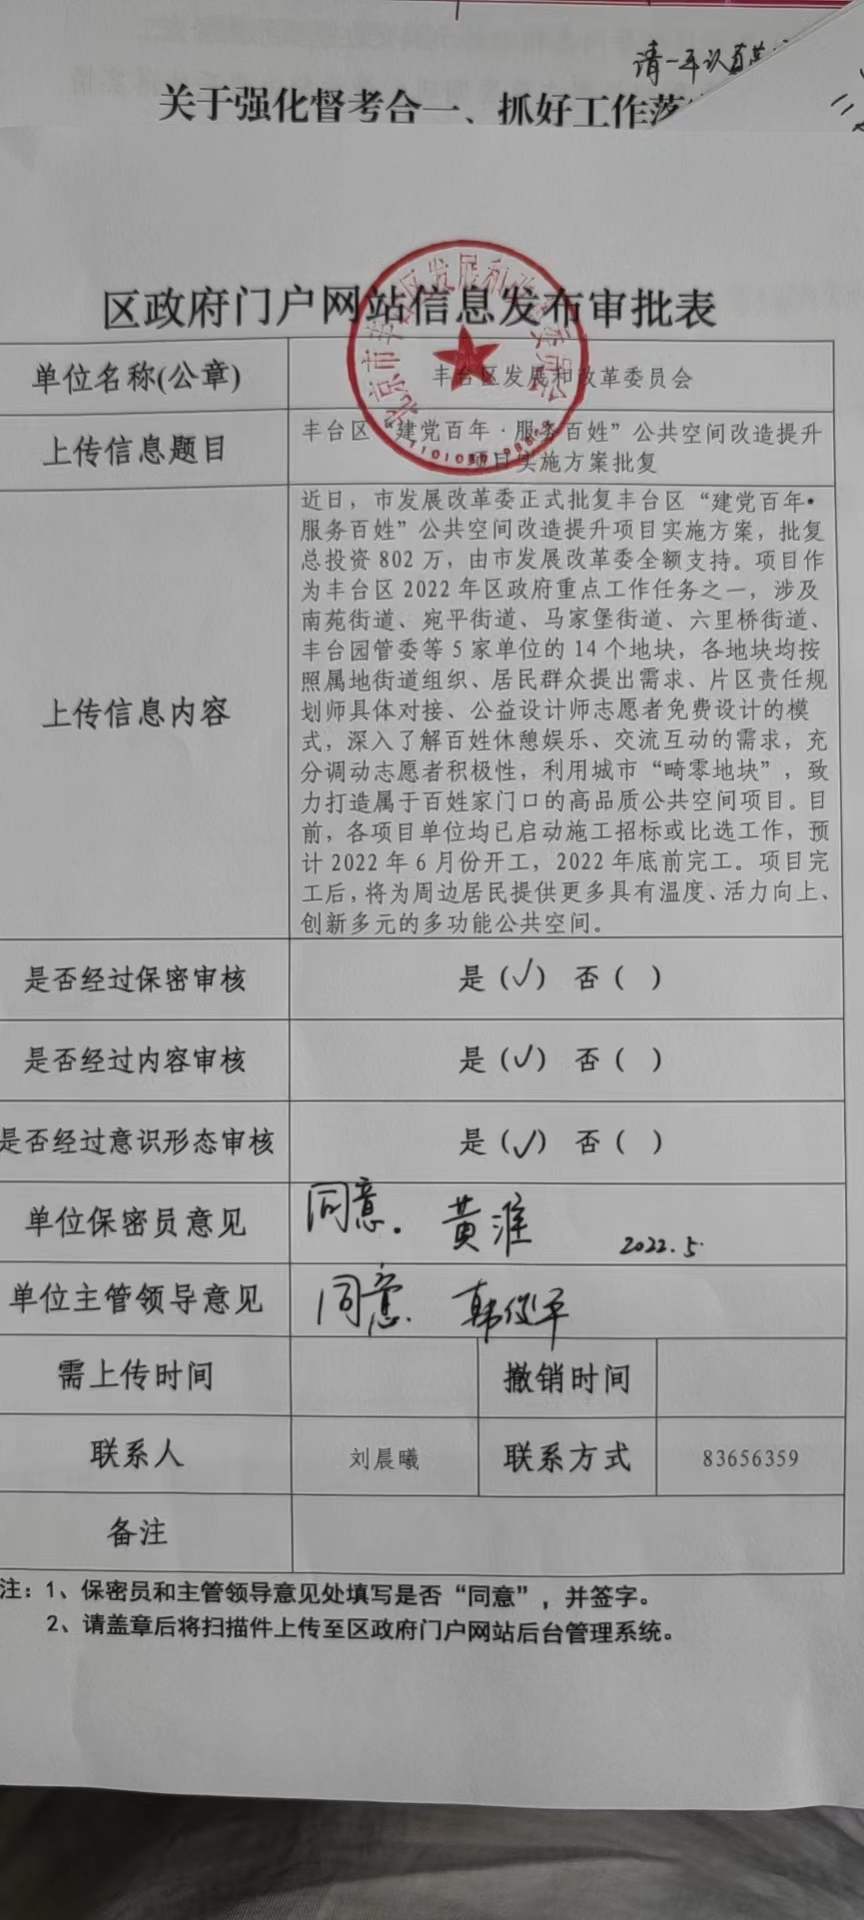 请一平认真
关于强化督考合一、抓好工作落
区政府门户网站信息发布审批表
北京市丰台区发展和改革委员会
单位名称(公章)
丰台区发展和改革委员会
上传信息题目
丰台区“建党百年·服务百姓”公共空间改造提升
项目实施方案批复
上传信息内容
近日，市发展改革委正式批复丰台区“建党百年·
服务百姓”公共空间改造提升项目实施方案，批复
总投资 802 万，由市发展改革委全额支持。项目作
为丰台区 2022 年区政府重点工作任务之一，涉及
南苑街道、宛平街道、马家堡街道、六里桥街道、
丰台园管委等 5 家单位的 14 个地块，各地块均按
照属地街道组织、居民群众提出需求、片区责任规
划师具体对接、公益设计师志愿者免费设计的模
式，深入了解百姓休憩娱乐、交流互动的需求，充
分调动志愿者积极性，利用城市“畸零地块”，致
力打造属于百姓家门口的高品质公共空间项目。目
前，各项目单位均已启动施工招标或比选工作，预
计 2022 年 6 月份开工，2022 年底前完工。项目完
工后，将为周边居民提供更多具有温度、活力向上、
创新多元的多功能公共空间。
是否经过保密审核
是（√） 否（ ）
是否经过内容审核
是（√） 否（ ）
是否经过意识形态审核
是（√） 否（ ）
单位保密员意见
同意。 黄淮 2022.5.
单位主管领导意见
同意. 韩俊平
需上传时间 撤销时间
联系人 刘晨曦 联系方式 83656359
备注
注：1、保密员和主管领导意见处填写是否“同意”，并签字。
2、请盖章后将扫描件上传至区政府门户网站后台管理系统。